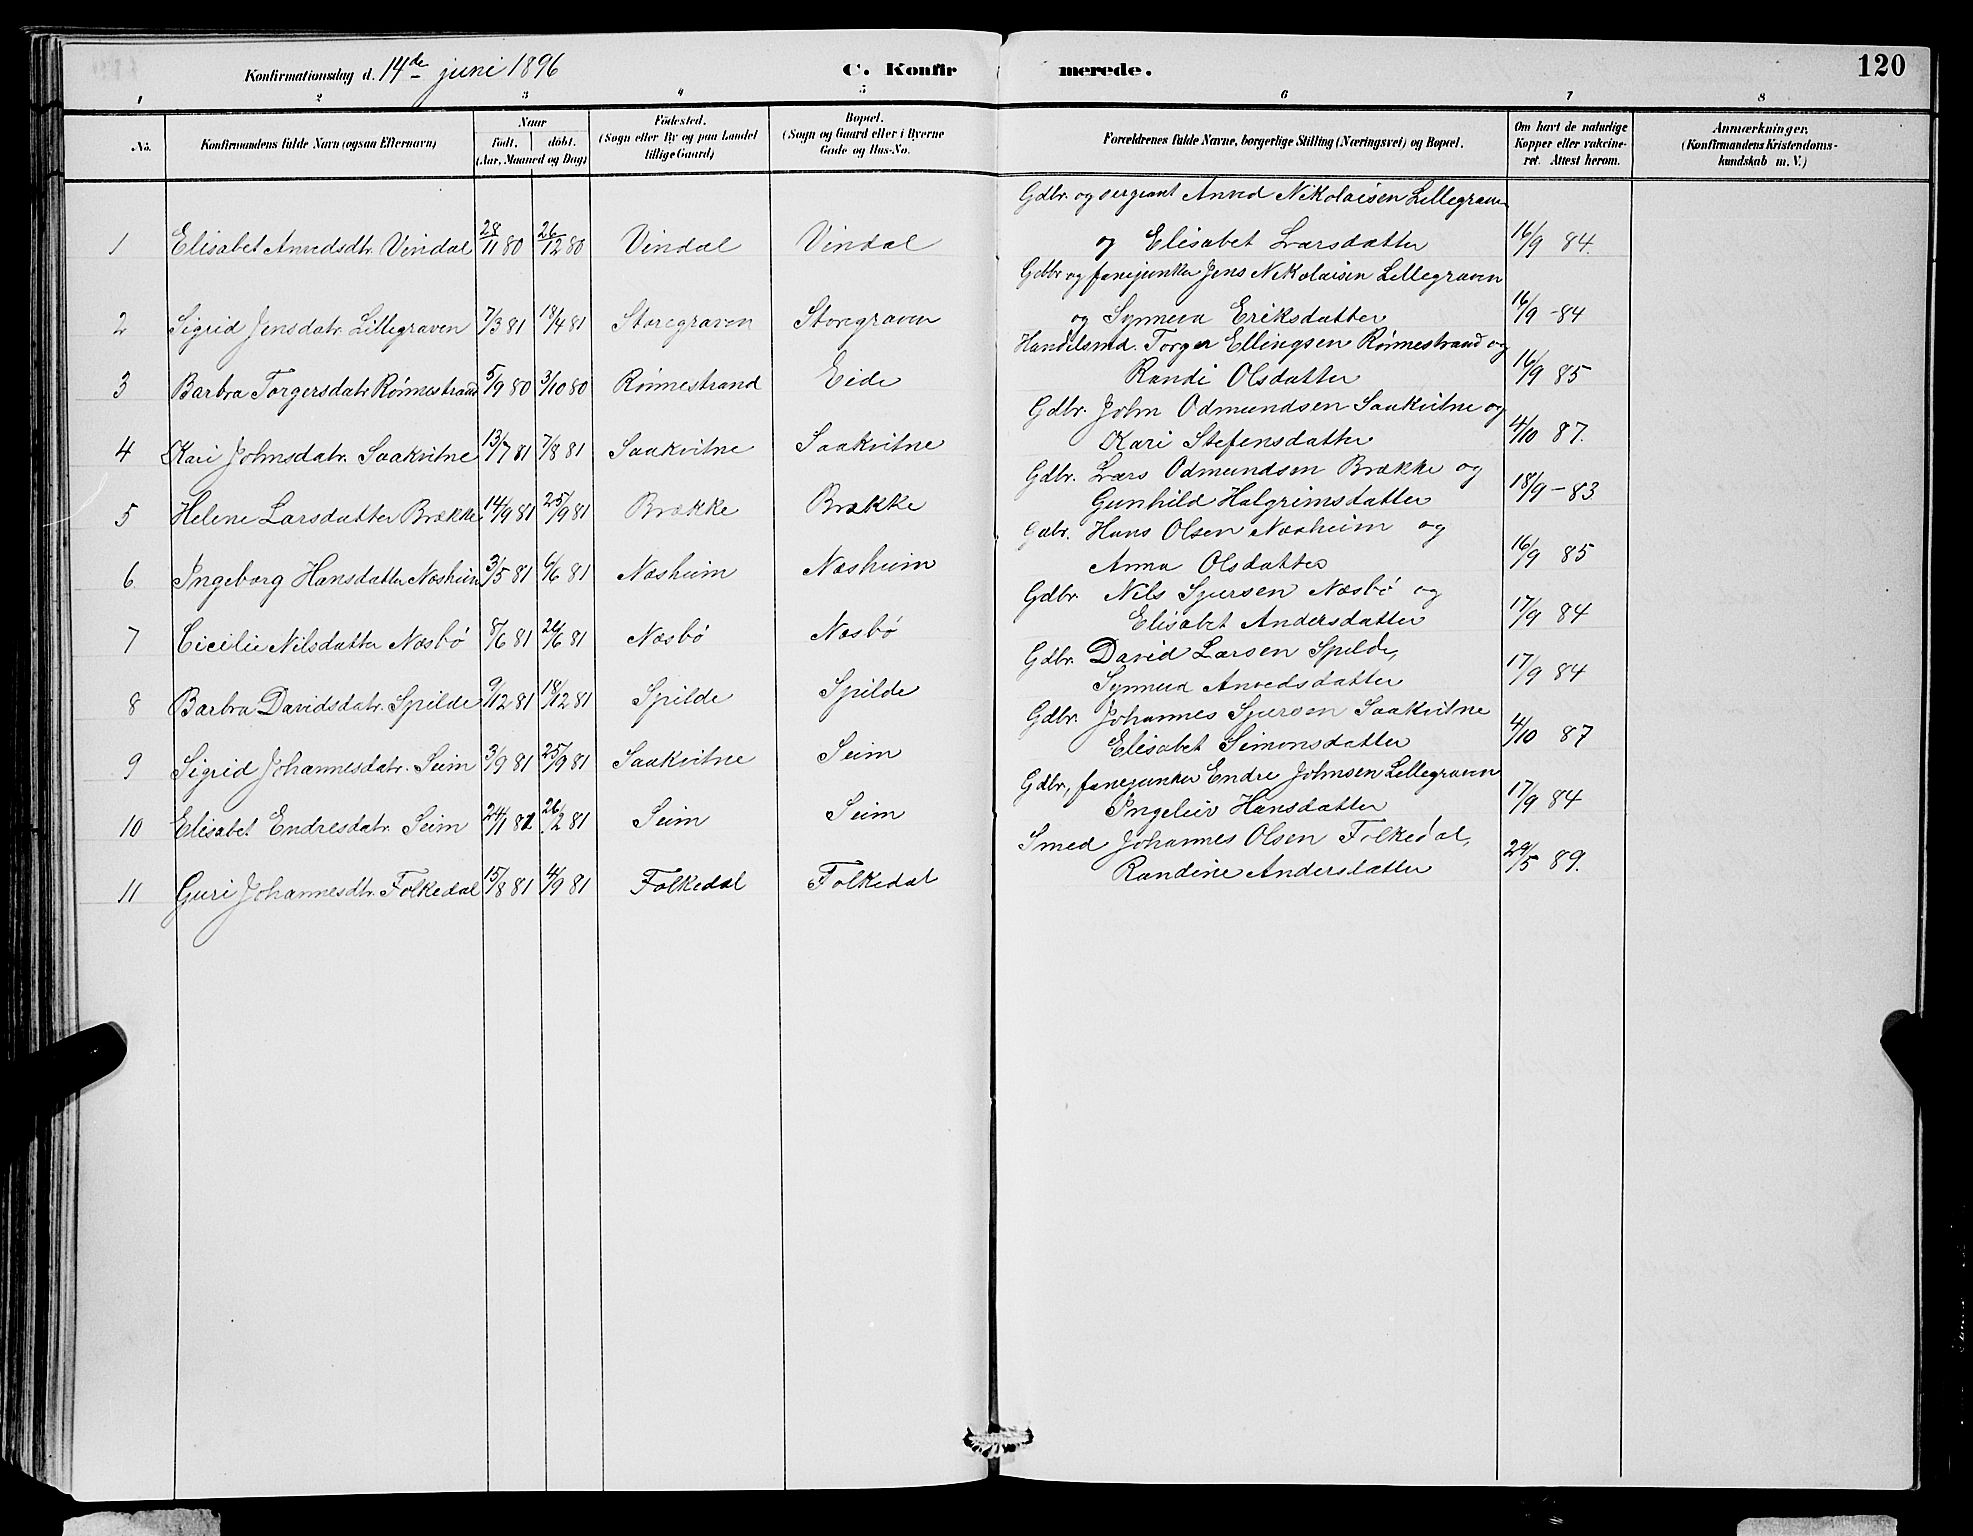 Konfirmationsdag d. 14de juni 1896 C. Konfirmerede. 120
1 2 3 4 5 6 7 8
No. Konfirmandens fulde Navn (ogsaa Efternavn) Naar Født, døbt. (Aar, Maaned og Dag) Fødested. (Sogn eller By og paa Landet tillige Gaard) Bopæl. (Sogn og Gaard eller i Byerne Gade og Hus-No. Forældrenes fulde Navne, borgerlige Stilling (Næringsvei) og Bopæl. Om havt de naturlige Kopper eller vakcineret. Attest herom. Anmærkninger. (Konfirmandens Kristendomskundskab m. V.)
Gdbr. og sergeant Anved Nikolaisen Lillegraven
1 Elisabet Anvedsdtr. Vindal 28/11 80 26/12 80 Vindal Vindal og Elisabet Larsdatter 16/9 84.
Gdbr og fanejunker Jens Nikolaisen Lillegraven
2 Sigrid Jensdatr. Lillegraven 7/3 81 18/4 81 Storegraven Storegraven og Synneva Eriksdatter 16/9 -84
Handelsmd. Torger Ellingsen Rønnestrand og
3 Barbra Torgersdatr Rønnestrand 5/9 80 3/10 80 Rønnestrand Eide Randi Olsdatter 16/9 85
Gdbr. John Odmundsen Saakvitne og
4 Kari Johnsdatr. Saakvitne 13/7 81 7/8 81 Saakvitne Saakvitne Kari Stefensdatter 4/10 87.
Gdbr. Lars Odmundsen Brække og
5 Helene Larsdatter Brække 14/9 81 25/9 81 Brække Brække Gunhild Halgrimsdatter 18/9 - 83
Gdbr. Hans Olsen Næsheim og
6 Ingeborg Hansdatter Næsheim 3/5 81 6/6 81 Næsheim Næsheim Anna Olsdatter 16/9 85
Gdbr. Nils Sjursen Næsbø og
7 Cicilie Nilsdatter Næsbø 8/6 81 26/6 81 Næsbø Næsbø Elisabet Andersdatter 17/9 84
Gdbr. David Larsen Spilde,
8 Barbra Davidsdatr. Spilde 9/12 81 18/12 81 Spilde Spilde Synneva Anvedsdatter 17/9 84
Gdbr. Johannes Sjursen Saakvitne
9 Sigrid Johannesdatr. Seim 3/9 81 25/9 81 Saakvitne Seim Elisabet Simonsdatter 4/10 87
Gdbr, fanejunker Endre Johnsen Lillegraven
10 Elisabet Endresdatr. Seim 24/1 81 26/2 81 Seim Seim Ingeleiv Hansdatter 17/9 84
Smed Johannes Olsen Folkedal,
11 Guri Johannesdtr. Folkedal 15/8 81 4/9 81 Folkedal Folkedal Randine Andersdatter 29/5 89.